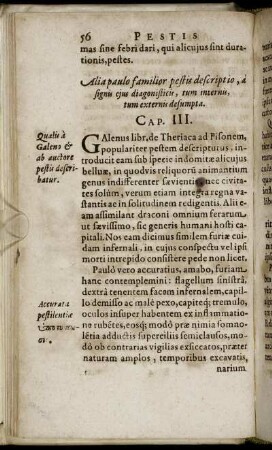 56 PESTIS
mas sine febri dari, qui alicujus sint durationis, pestes.
Alia paulo familior pestis descriptio, à
signis ejus diagnosticis, tum internis,
tum externis desumpta.
CAP. III.
Qualis à
Galeno &
ab auctore
pestis descri-
batur.
GAlenus libr. de Theriaca ad Pisonem,
populariter pestem descripturus, in-
troducit eam sub specie indomitæ alicujus
belluæ, in quodvis reliquorũ animantium
genus indifferenter sævientis, nec civita-
tes solùm, verum etiam integra regna va-
stantis ac in solitudinem redigentis. Alii e-
am assimilant draconi omnium ferarum,
ut sævissimo, sic generis humani hosti ca-
pitali. Nos eam dicimus similem furiæ cui-
dam infernali, in cujus conspectu vel ipsi
morti intrepido consistere pede non licet.
Paulò vero accuratius, amabo, furiam
hanc contemplemini: flagellum sinistrâ,
dextrâ tenentem facem infernalem, capil-
lo demisso ac malè pexo, capiteq; tremulo,
oculos insuper habentem ex inflammatio-
ne rubẽtes, eosq; modò præ nimia somno-
lẽtia adductis superciliis semiclausos, mo-
dò ob contrarias vigilias exsiccatos, præter
naturam amplos, temporibus excavatis,
narium
Accurata
pestilentiæ